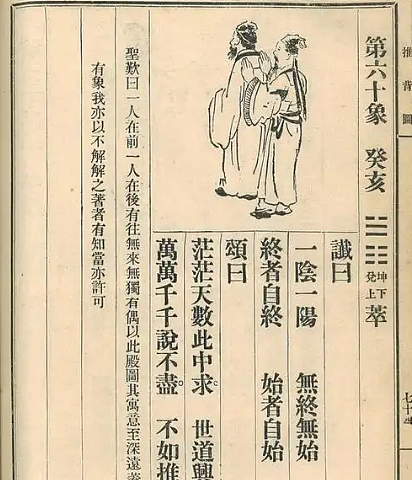 推背圖
七十
第六十象 癸亥 坤下兌上 萃
讖曰
一陰一陽 無終無始
終者自終 始者自始
頌曰
茫茫天數此中求。 世道興
萬萬千千說不盡。 不如推
聖歎曰一人在前一人在後有往無來無獨有偶以此殿圖其寓意至深遠
有象我亦以不解解之著者有知當亦許可